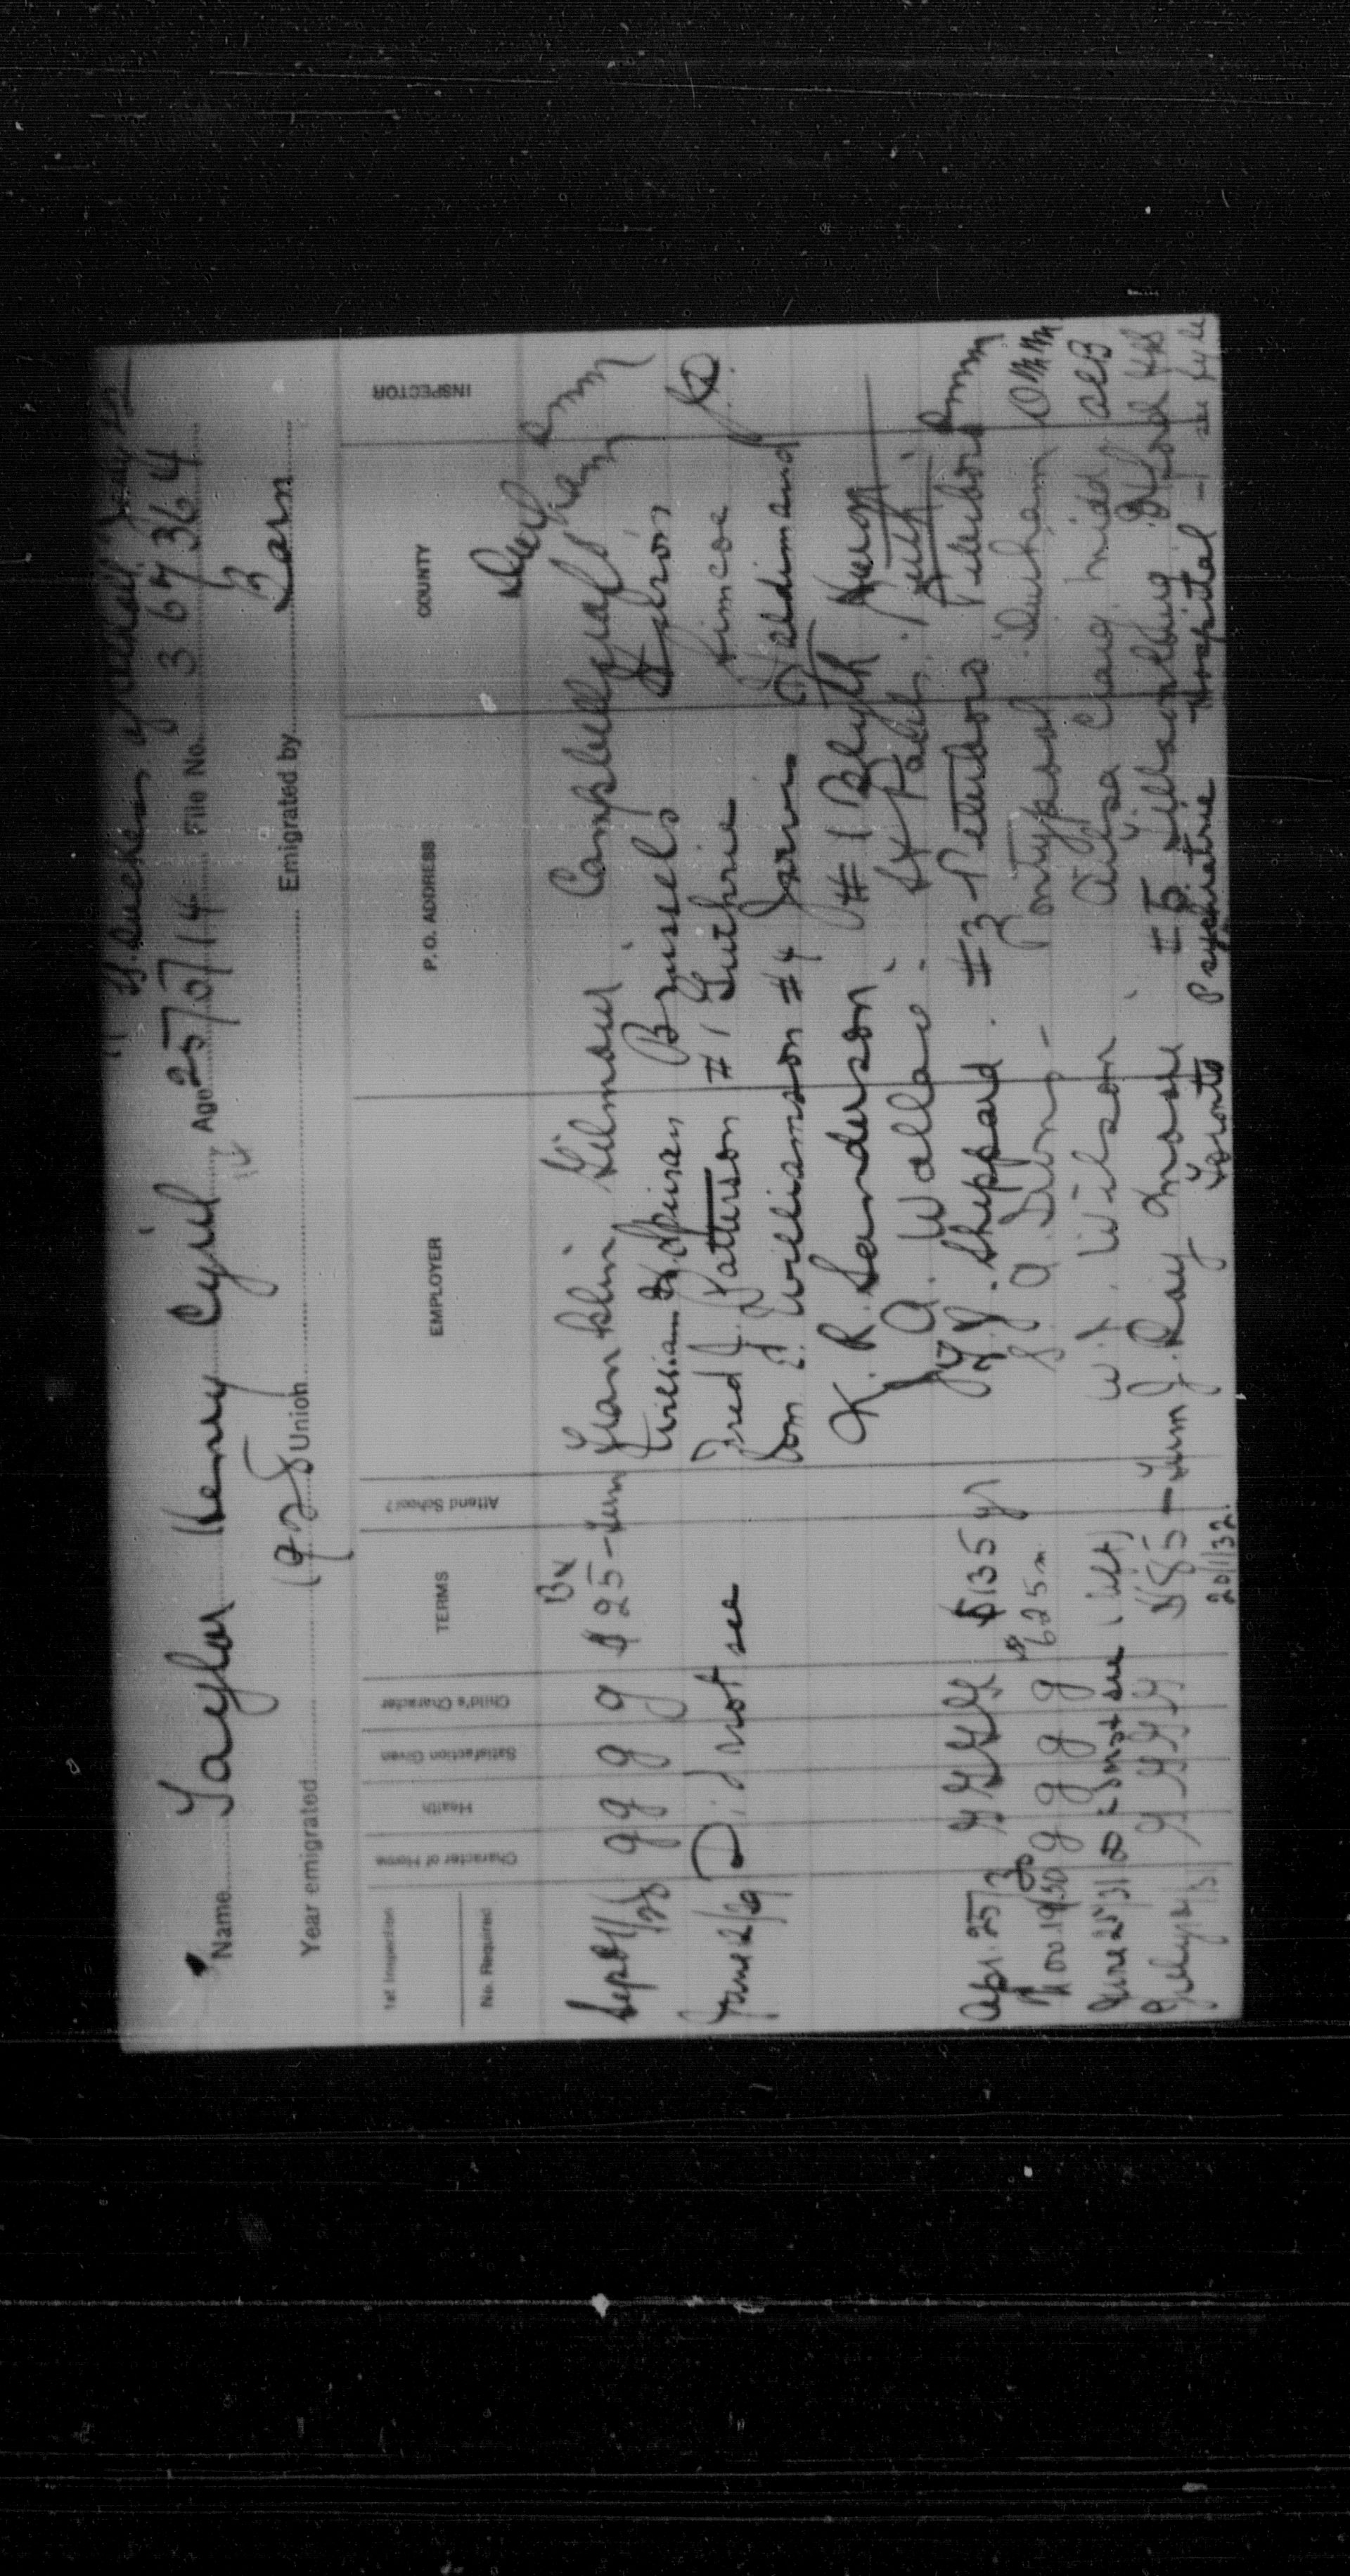 Name Taylor Henry Cyril Age 25/5/14 File No. 367364
14
Year emigrated 1928 Union Emigrated by Barn
1st Inspection
No. Required
Character of Home
Health
Satisfaction Given
Child's Character
TERMS
Attend School?
EMPLOYER
P.O. ADDRESS
COUNTY
INSPECTOR
Durham
Sept 11/28 g g g g $125 - Term Franklin Gilmour Campbellcroft
William H. Speiran Brussels Huron
June 12/29 Did not see Fred J. Patterson #1 Guthrie Simcoe
Williamson #4 Jarvis Haldimand
K. R. Sanderson #1 Blyth Huron
A. Wallace St Pauls Perth
Apr. 25/30 G G G G $135 yr Sheppard #3 Peterboro Peterboro
Nov. 19/30 g g g g $25 m Pontypool Durham OMM
June 25/31 not see (left) W. J. Wilson Ailsa Craig Midd ACB
July 21/31 G G G G $85 - Term J. Ray Moore #5 Tillsonburg Oxford
20/1/32 Toronto Psychiatric Hospital - see file